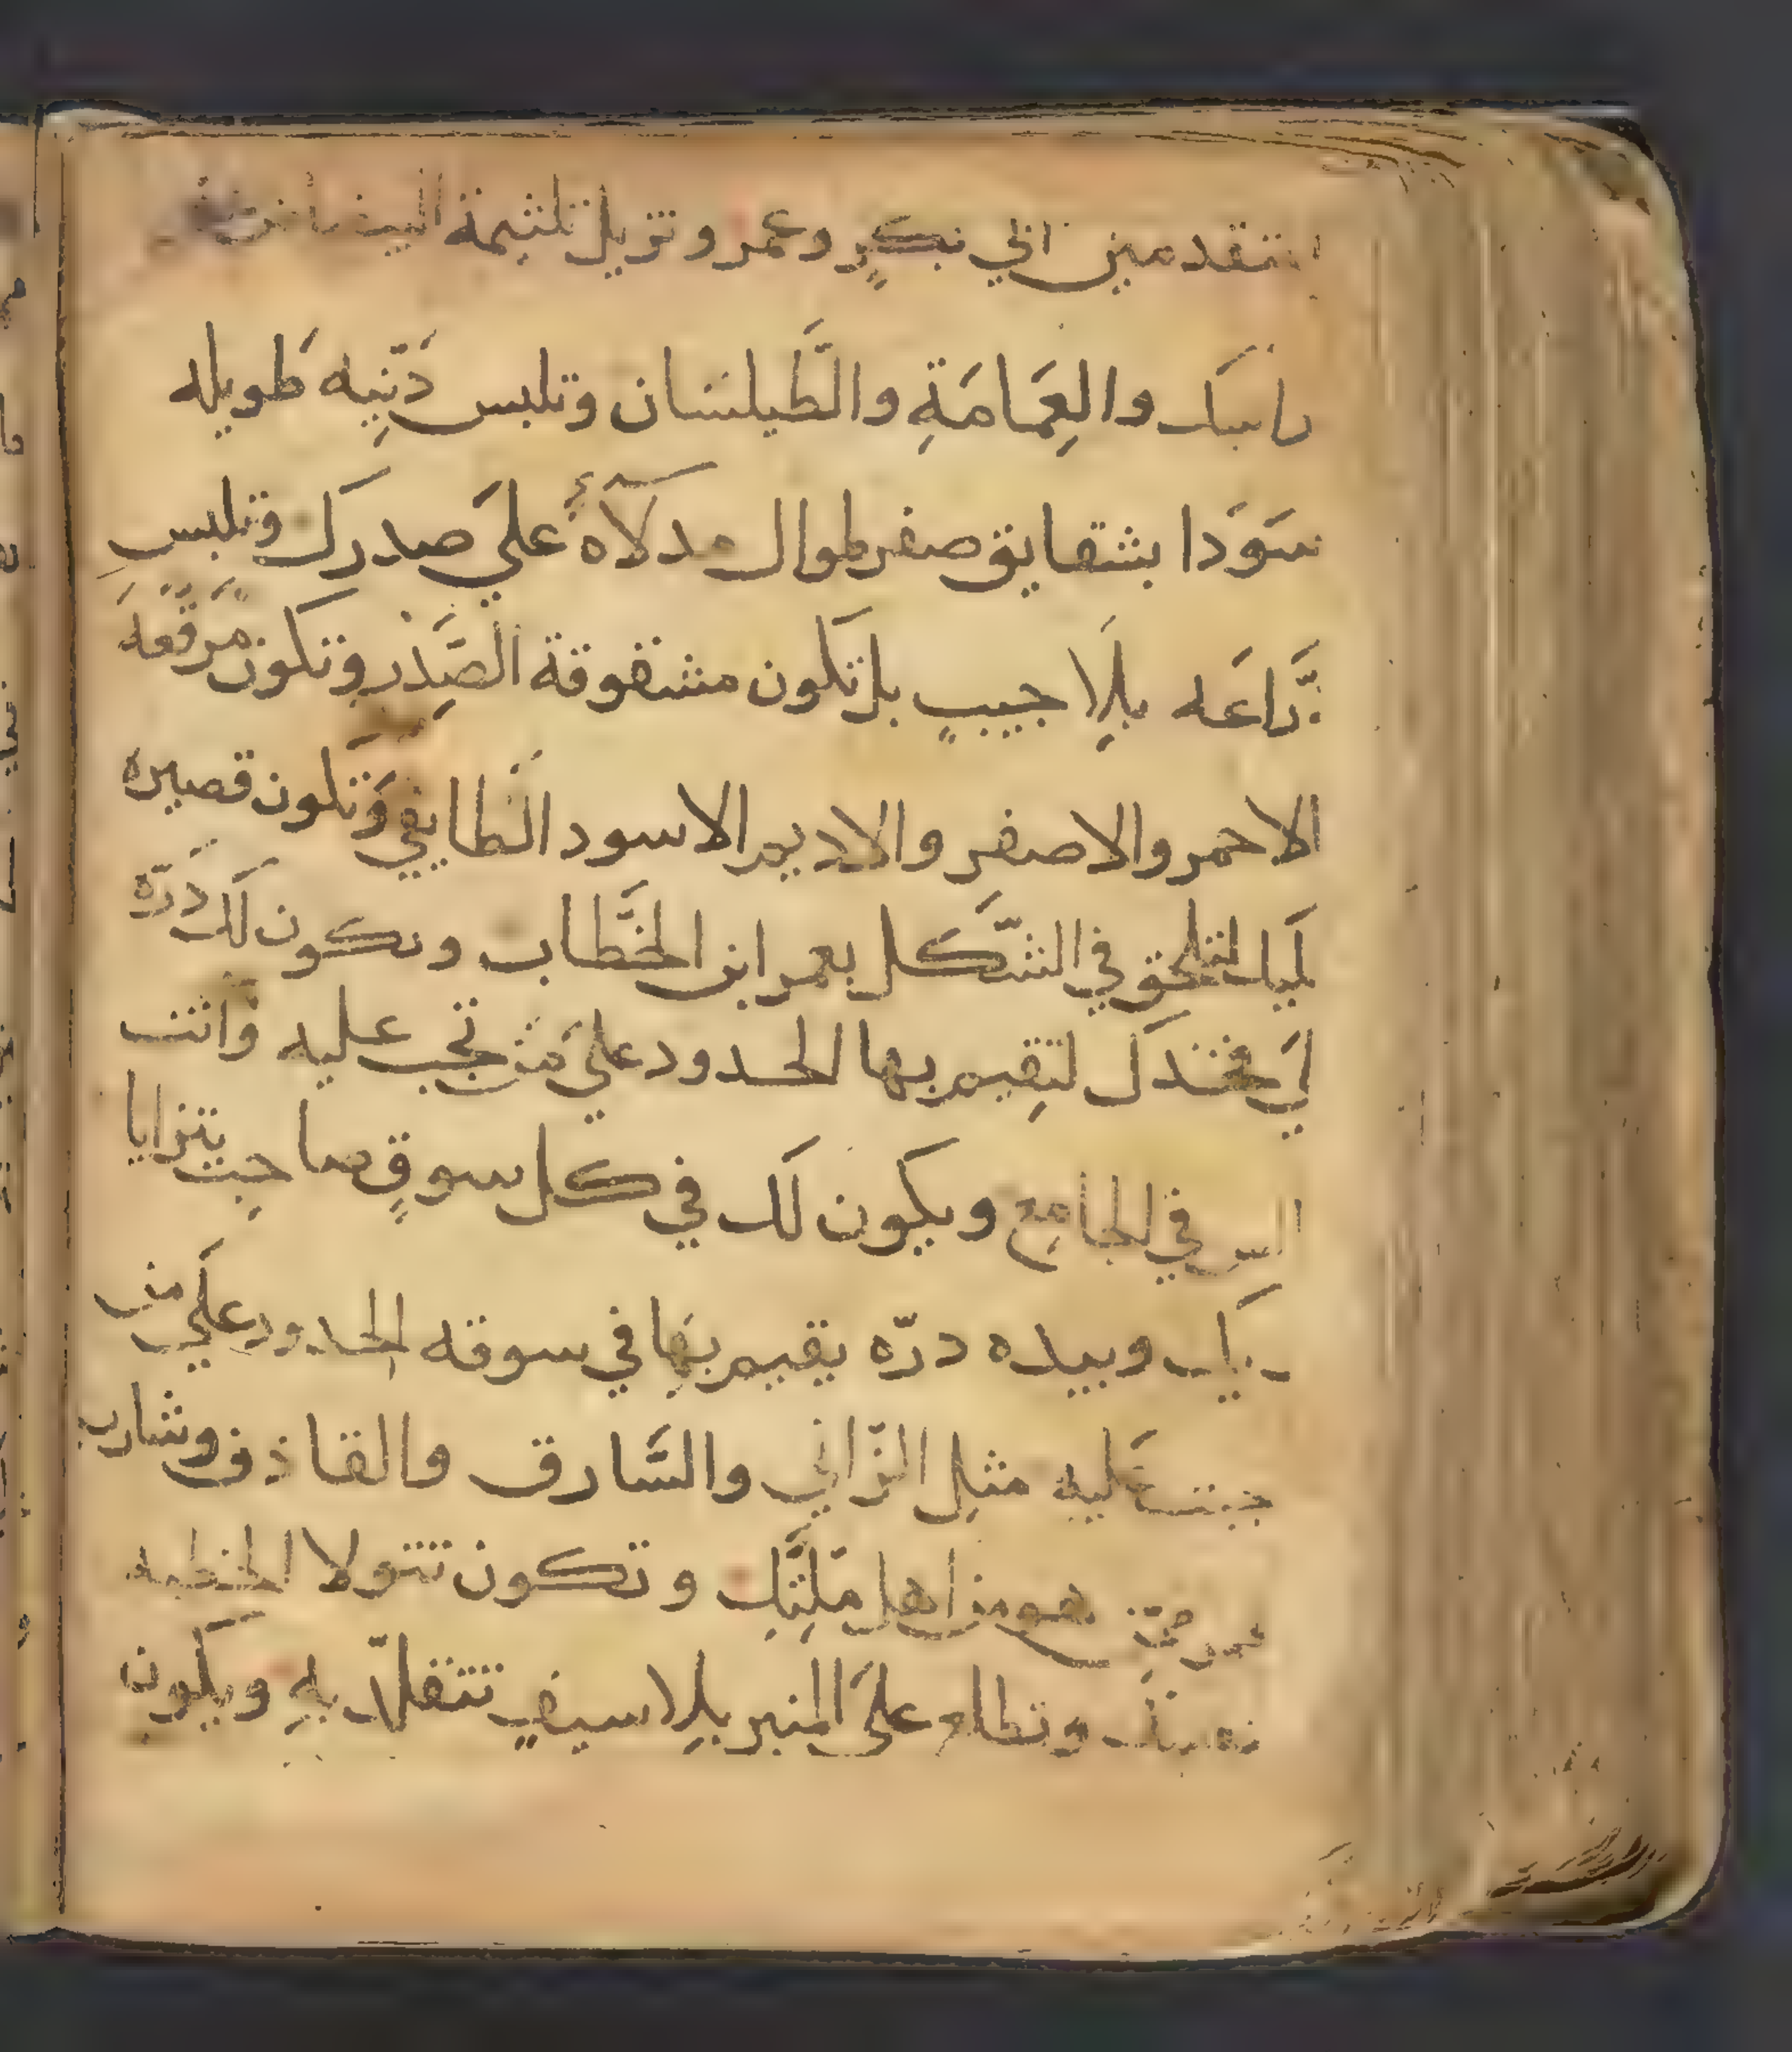 المتقدمين ابي بكرٍ وعمر وتزيل تلثيمة
راسَك والعِمَامَةِ والطَّيلسَان وتلبس دَنِّيه طَويله
سَوَدا بشقايق صفر طوال مدلاهٌ علَي صدرك وتلبسِ
دُّراعَه بلِا جيبٍ بل تكون مشقوقة الصَّدر وتكون مرقّعهَ
الاحمر والاصفر والاديم الاسود الطَايفي وَتكون قصيره
لَيك لتلحق في الشَّكل بعمر ابن الخَّطاب وتكون لَك دَرّه
لَي فخذك لتِقيم بها الحدود علَي مَن تجب عليه وَانت
في الجامع ويكون لَك في كل سوقٍ صاحِب يتزايا
بزيك وبيده درّه يقيم بهَِا في سوقه الحدود علَي من
جبت عَليه مثل الزّاني والسَّارق والقاذف وشارب
هو من اهل مِلّتِك وتكون تتولا الخطبه
وتطلع علَي المنبر بلِا سيفٍ تتقلّد بهِ ويكون